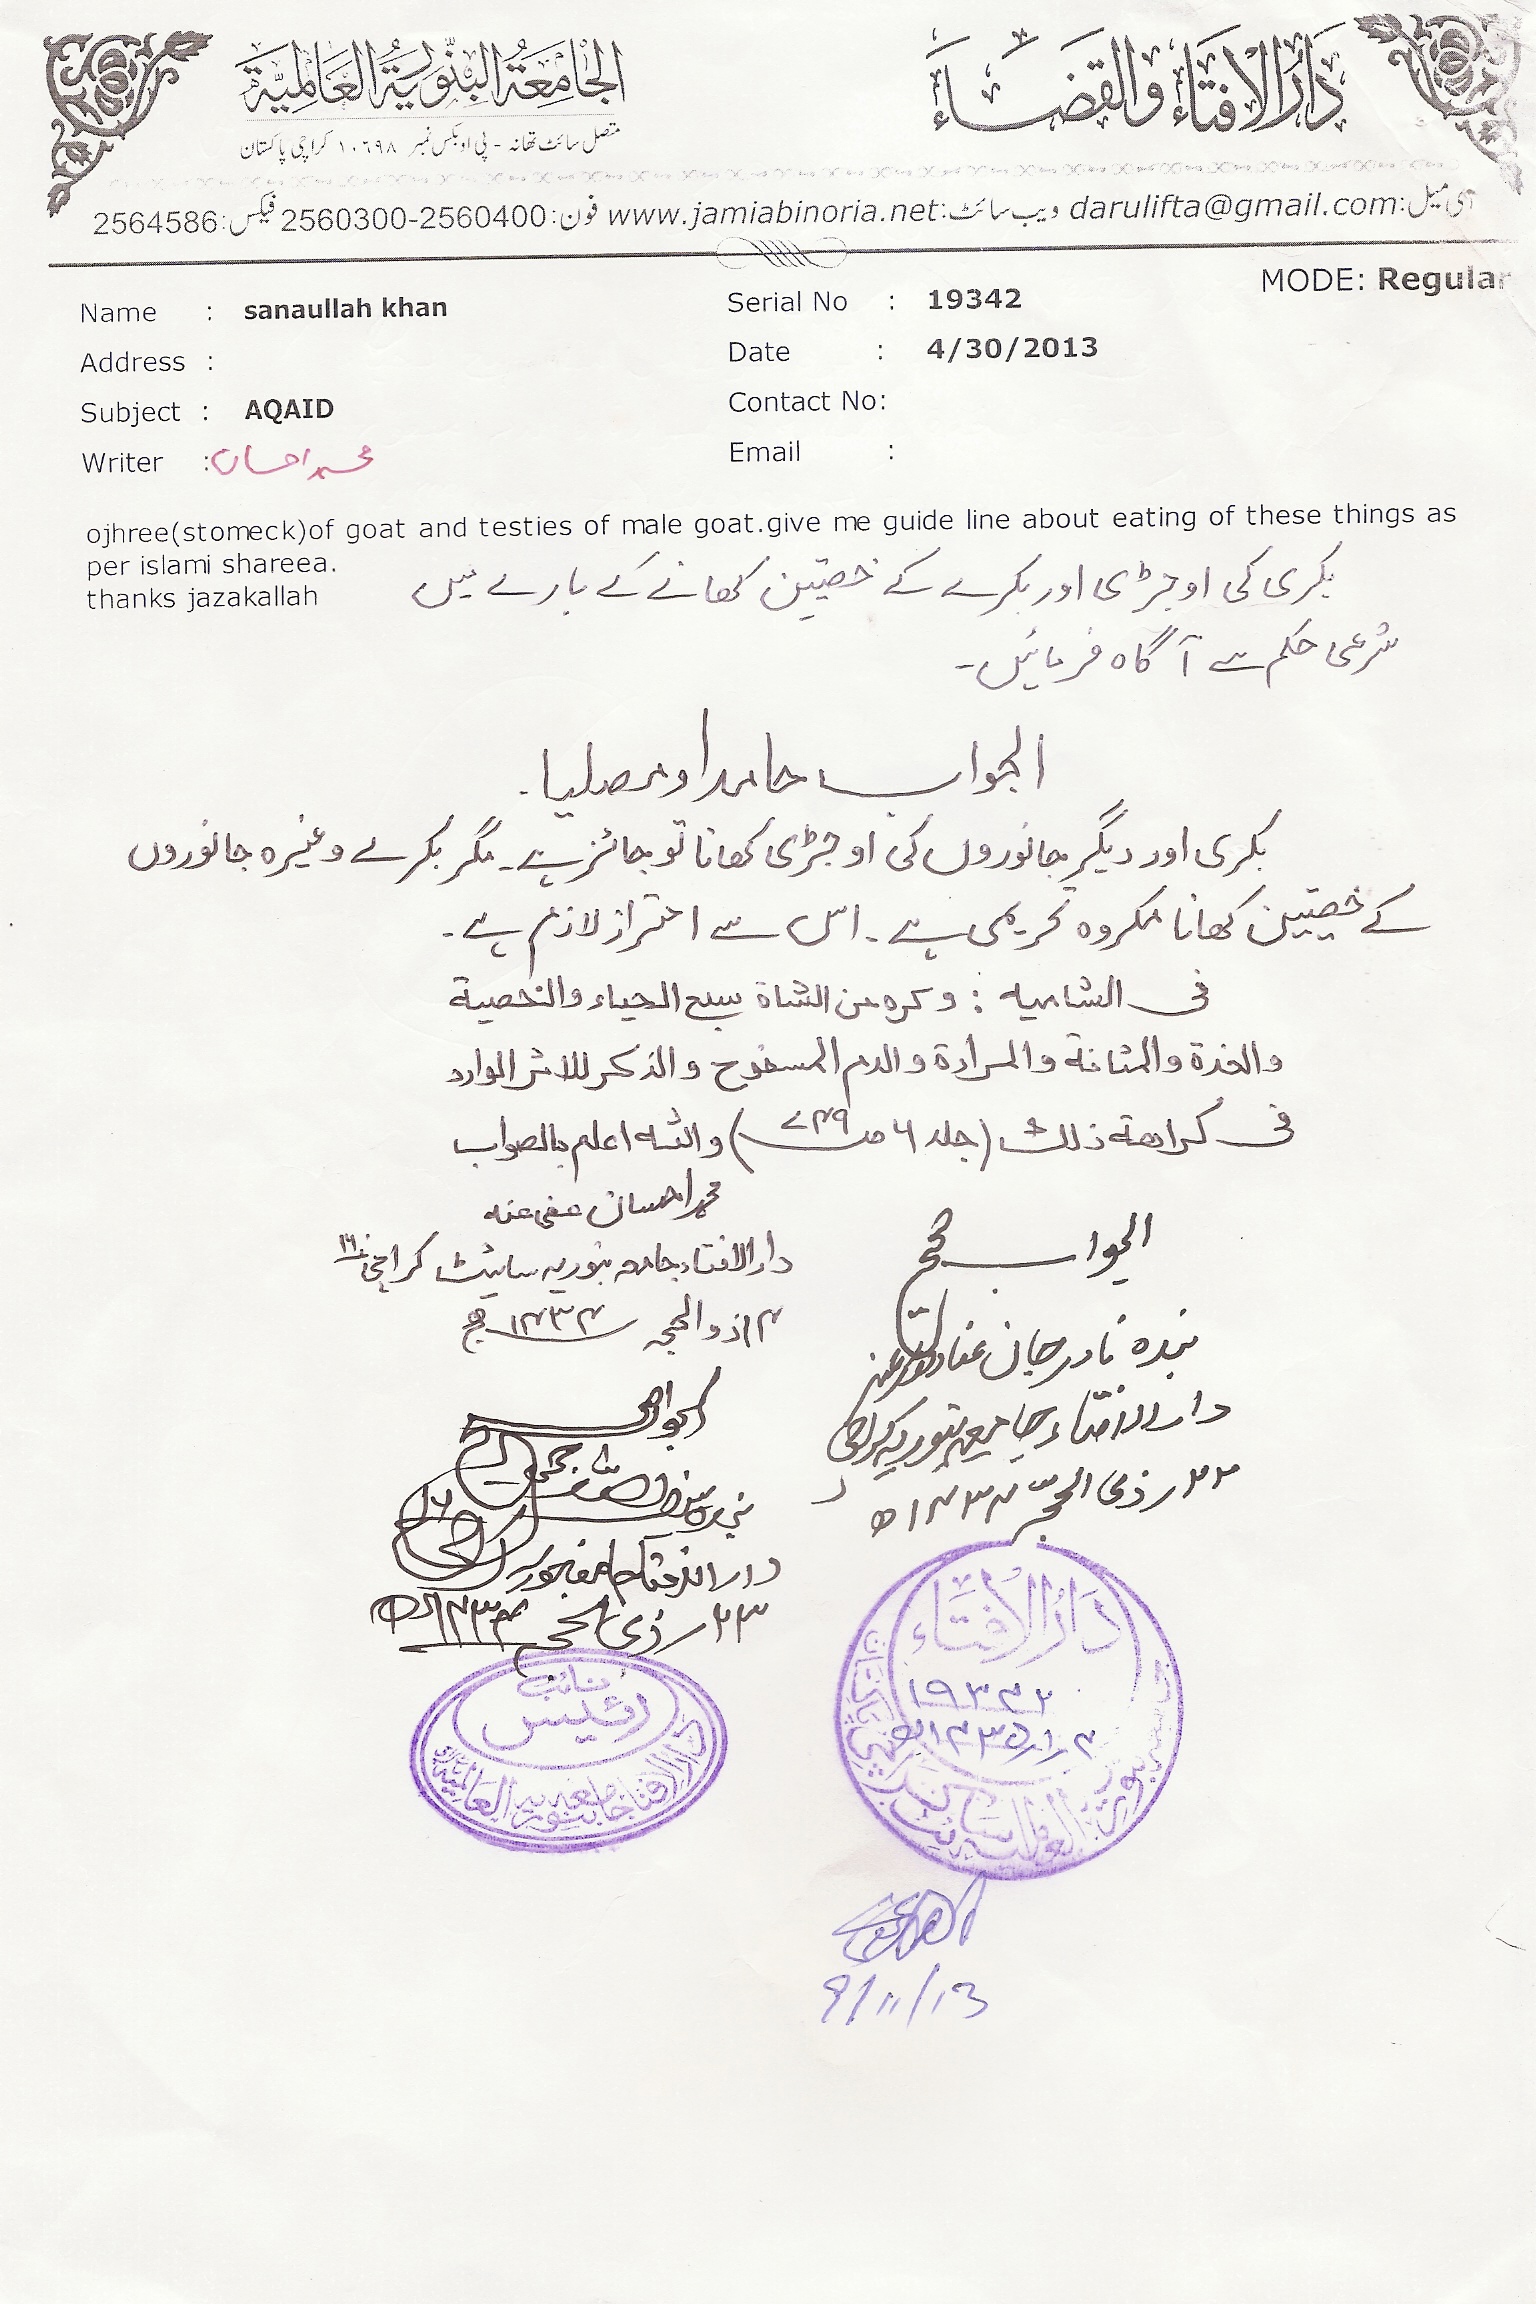 دَارُ الافتَاء وَالقَضَاء
الجَامعَةُ البَنّوريَّةُ العَالَمِيَّة
متصل سائٹ تھانہ - پی او بکس نمبر ۱۰۶۹۸ کراچی پاکستان
ای میل: darulifta@gmail.com ویب سائٹ: www.jamiabinoria.net فون: 2560300-2560400 فیکس: 2564586
MODE: Regular
Name : sanaullah khan
Serial No : 19342
Address :
Date : 4/30/2013
Subject : AQAID
Contact No:
Writer : محمد احسان
Email :
ojhree(stomeck)of goat and testies of male goat.give me guide line about eating of these things as
per islami shareea.
thanks jazakallah
بکری کی اوجڑی اور بکرے کے خصیتین کھانے کے بارے میں
شرعی حکم سے آگاہ فرمائیں۔
الجواب حامدا ومصلیا۔
بکری اور دیگر جانوروں کی اوجڑی کھانا تو جائز ہے۔ مگر بکرے وغیرہ جانوروں
کے خصیتین کھانا مکروہ تحریمی ہے۔ اس سے احتراز لازم ہے۔
فی الشامیہ : وکرہ من الشاة سبع الحیاء والخصیة
والغدة والمثانة والمرارة والدم المسفوح والذکر للاثر الوارد
فی کراھة ذلک (جلد ۶ صـ ۷۴۹) واللہ اعلم بالصواب
محمد احسان عفی عنہ
دار الافتاء جامعہ بنوریہ سائیٹ کراچی ۱۶
۱۴ ذو الحجہ ۱۴۳۴ ھ
الجواب صحیح
بندہ نادر جان عفا اللہ عنہ
دار الافتاء جامعہ بنوریہ کراچی
۲۲ ذی الحجہ ۱۴۳۴ ھ
الجواب صحیح
بندہ
دار الافتاء جامعہ بنوریہ
۲۳ ذی الحجہ ۱۴۳۴ ھ
دَارُ الافتَاء
۱۹۳۴۲
۴/۱/۱۴۳۵ھ
نائب
رئیس
دار الافتاء جامعہ بنوریہ العالمیہ
9/11/13